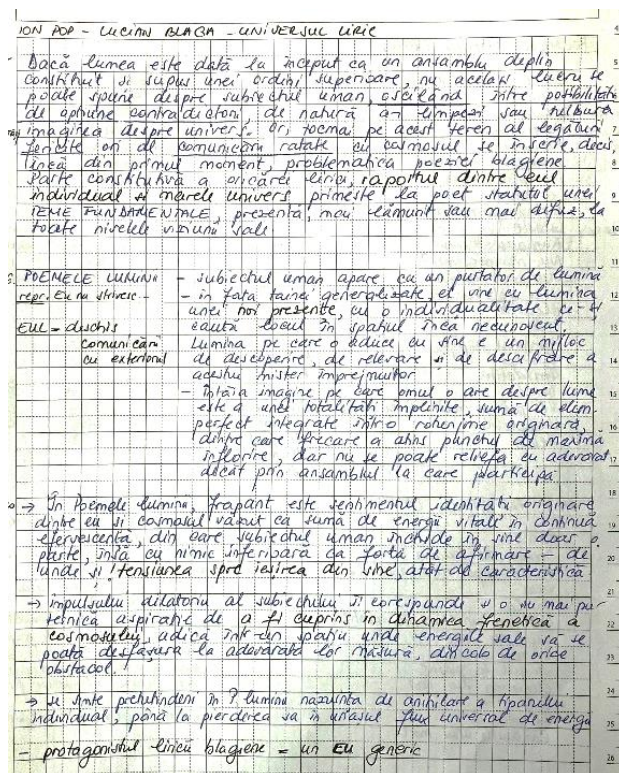 ION POP - LUCIAN BLAGA - UNIVERSUL LIRIC
Dacă lumea este dată la început ca un ansamblu deplin
constituit si supus unei ordini superioare, nu același lucru se
poate spune despre subiectul uman, oscilând între posibilități
de opțiune contradictorii, de natură a-i limpezi sau tulbura
imaginea despre univers. Or, tocmai pe acest teren al legăturii
fericite ori de comunicării ratate cu cosmosul se înscrie, deci,
încă din primul moment, problematica poeziei blagiene.
Parte constitutivă a oricărei lirici, raportul dintre eul
individual si marele univers primește la poet statutul unei
TEME FUNDAMENTALE, prezentă, mai lămurit sau mai difuz, la
toate nivelele viziunii sale.
POEMELE LUMINII - subiectul uman apare ca un purtător de lumină
repr. Eu nu strivesc... - în fața tainei generalizate, el vine cu lumina
unei noi prezențe, cu o individualitate ce-și
EUL = deschis caută locul în spațiul încă necunoscut.
comunicării Lumina pe care o aduce cu sine e un mijloc
cu exteriorul de descoperire, de relevare și de descifrare a
acestui mister împrejmuitor
- întâia imagine pe care omul o are despre lume
este a unei totalități împlinite, sumă de elem.
perfect integrate într-o rotunjime originară,
dintre care fiecare a atins punctul de maximă
înflorire, dar nu se poate reliefa cu adevărat
decât prin ansamblul la care participă
→ În Poemele luminii, frapant este sentimentul identității originare
dintre eu si cosmosul văzut ca sumă de energii vitale în continuă
efervescență, din care subiectul uman închide în sine doar o
parte, însă cu nimic inferioară ca forță de afirmare - de
unde și tensiunea spre ieșirea din sine, atât de caracteristică
→ impulsului dilatoriu al subiectului îi corespunde și o nu mai puțin
ternică aspirație de a fi cuprins în dinamica frenetică a
cosmosului, adică într-un spațiu unde energiile sale să se
poată desfășura la adevărata lor măsură, dincolo de orice
obstacol.
→ se simte pretutindeni în P. luminii năzuința de anihilare a tiparului
individual, până la pierderea sa în uriașul flux universal de energii
- protagonistul liricii blagiene = un EU generic